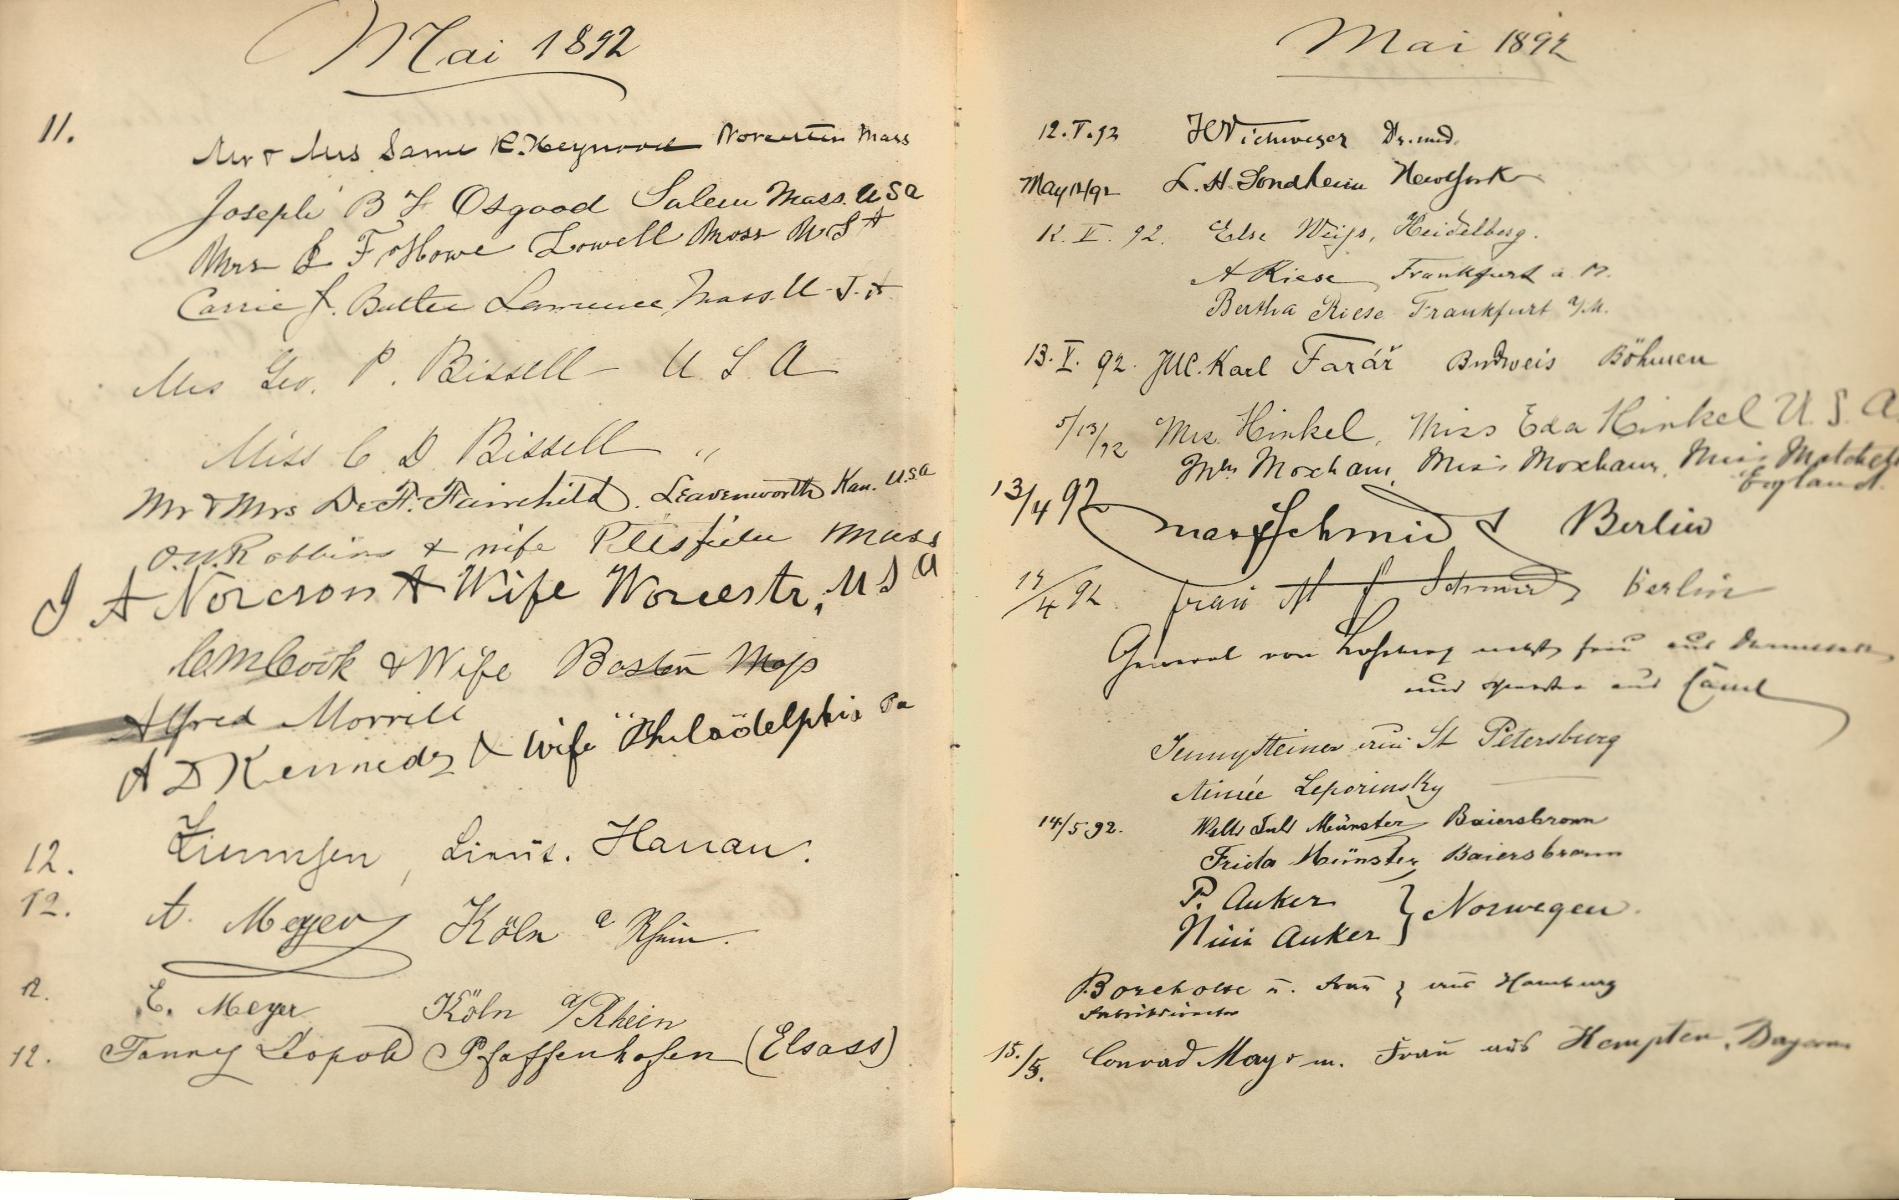 Mai 1892
11.
Mr & Mrs Saml R. Heywood Worcester Mass
Joseph B F Osgood Salem Mass. U S a
Mrs E F Howe Lowell Mass U S A
Carrie J. Butler Lawrence Mass. U. S. A
Mrs Geo. P. Bissell U S A
Miss C D Bissell "
Mr & Mrs De F. Fairchild. Leavenworth Kan. U.S.a
O. W. Robbins & wife Pittsfield Mass
J A Norcross & Wife Worcestr, U S a
C M Cook & Wife Boston Mass
Alfred Morrill
A D Kennedy & Wife Philadelphia Pa
12. Lieut. Hanau.
12. A. Meyer Köln a Rhein.
12. E. Meyer Köln a/Rhein
12. Fanny Leopold Pfaffenhofen (Elsass)
Mai 1892
12.V.92 Dr. med.
May 12/92 L. H. Sondheim New York
12. V. 92. Else Weiss, Heidelberg.
A Riese Frankfurt a. M.
Bertha Riese Frankfurt a/M.
13. V. 92. JUC. Karl Farář Budweis Böhmen
5/13/92 Mrs. Hinkel, Miss Eda Hinkel U. S. A
Mrs Moxham, Miss Moxham, Miss
England.
13/4 92 Max Schmidt Berlin
14/4 92 Frau M Schmidt Berlin
General von nebst Frau aus
und aus Cassel
Jenny Steiner aus St Petersburg
Aimée Leporinsky
14/5.92. Münster Baiersbronn
Frida Münster Baiersbronn
P. Anker } Norwegen.
Nini Anker
u. Frau } aus Hamburg
Fabrikdirector
15./5. Conrad Mayr m. Frau aus Kempten, Bayern